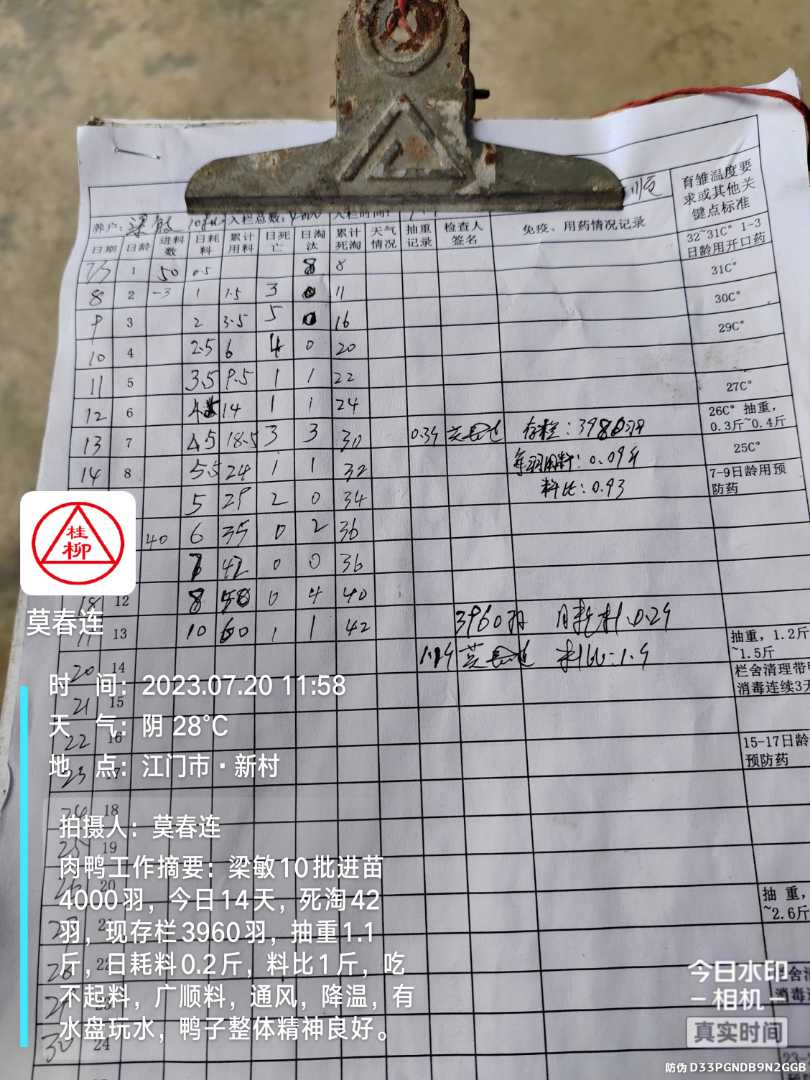 养户: 梁敏 10批 入栏总数: 入栏时间:
育雏温度要求或其他关键点标准
日期 日龄 进料数 日耗料 累计用料 日死亡 日淘汰 累计死淘 天气情况 抽重记录 检查人签名 免疫、用药情况记录
1 50 0.5 8 8 32~31C° 1-3日龄用开口药
8 2 -3 1 1.5 3 0 11 31C°
9 3 2 3.5 5 0 16 30C°
10 4 2.5 6 4 0 20 29C°
11 5 3.5 9.5 1 1 22 27C°
12 6 4.5 14 1 1 24 26C° 抽重,0.3斤~0.4斤
13 7 4.5 18.5 3 3 30 0.39 存栏:3980羽 25C°
14 8 5.5 24 1 1 32 每羽用料:0.09斤 7-9日龄用预防药
5 29 2 0 34 料比:0.93
40 6 35 0 2 36
7 42 0 0 36
18 12 8 50 0 4 40
19 13 10 60 1 1 42 3960羽 日耗料0.29 抽重,1.2斤~1.5斤
20 14 1.19 料比:1.9 栏舍清理带
消毒连续3天
21 15
22 16 15-17日龄
预防药
23 17
18
19
20 抽重,
~2.6斤
22
栏舍清
消毒
30 24
桂柳
莫春连
时 间:2023.07.20 11:58
天 气:阴 28℃
地 点:江门市·新村
拍摄人:莫春连
肉鸭工作摘要:梁敏10批进苗
4000羽,今日14天,死淘42
羽,现存栏3960羽,抽重1.1
斤,日耗料0.2斤,料比1斤,吃
不起料,广顺料,通风,降温,有
水盘玩水,鸭子整体精神良好。
今日水印
-相机-
真实时间
防伪 D33PGNDB9N2GGB